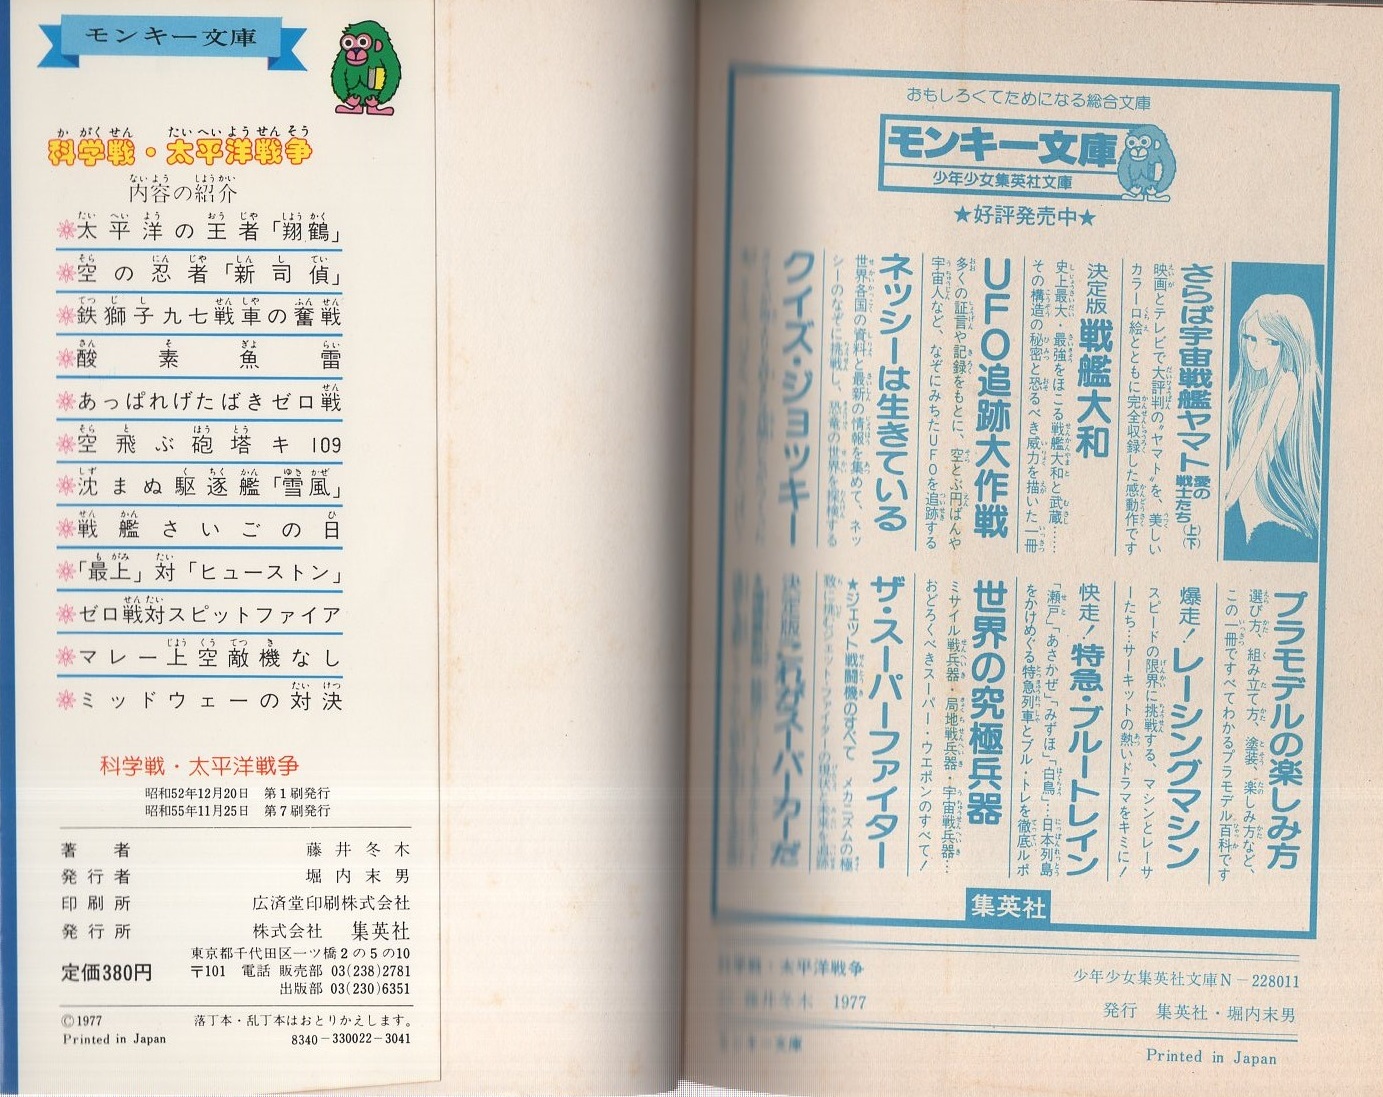 モンキー文庫
科学戦・太平洋戦争
内容の紹介
太平洋の王者「翔鶴」
空の忍者「新司偵」
鉄獅子九七戦車の奮戦
酸素魚雷
あっぱれげたばきゼロ戦
空飛ぶ砲塔キ109
沈まぬ駆逐艦「雪風」
戦艦さいごの日
「最上」対「ヒューストン」
ゼロ戦対スピットファイア
マレー上空敵機なし
ミッドウェーの対決
科学戦・太平洋戦争
昭和52年12月20日 第1刷発行
昭和55年11月25日 第7刷発行
著者 藤井冬木
発行者 堀内末男
印刷所 広済堂印刷株式会社
発行所 株式会社 集英社
東京都千代田区一ツ橋2の5の10
定価380円
〒101 電話 販売部 03(238)2781
出版部 03(230)6351
©1977 落丁本・乱丁本はおとりかえします。
Printed in Japan 8340-330022-3041
おもしろくてためになる総合文庫
モンキー文庫
少年少女集英社文庫
★好評発売中★
さらば宇宙戦艦ヤマト 愛の戦士たち(上・下)
映画とテレビで大評判の“ヤマト”を、美しい
カラー口絵とともに完全収録した感動作です
決定版 戦艦大和
史上最大・最強をほこる戦艦大和と武蔵……
その構造の秘密と恐るべき威力を描いた一冊
UFO追跡大作戦
多くの証言や記録をもとに、空とぶ円ばんや
宇宙人など、なぞにみちたUFOを追跡する
ネッシーは生きている
世界各国の資料と最新の情報を集めて、ネッ
シーのなぞに挑戦し、恐竜の世界を探検する
クイズ・ジョッキー
プラモデルの楽しみ方
選び方、組み立て方、塗装、楽しみ方など、
この一冊ですべてわかるプラモデル百科です
爆走!レーシングマシン
スピードの限界に挑戦する、マシンとレーサ
ーたち…サーキットの熱いドラマをキミに!
快走!特急・ブルートレイン
「瀬戸」「あさかぜ」「みずほ」「白鳥」…日本列島
をかけめぐる特急列車とブル・トレを徹底ルポ
世界の究極兵器
ミサイル戦兵器・局地戦兵器・宇宙戦兵器…
おどろくべきスーパー・ウエポンのすべて!
ザ・スーパーファイター
★ジェット戦闘機のすべて メカニズムの極
致に挑むジェット・ファイターの現状と未来を追跡
決定版これがスーパーカーだ
集英社
科学戦・太平洋戦争
藤井冬木 1977
少年少女集英社文庫N-228011
発行 集英社・堀内末男
モンキー文庫
Printed in Japan